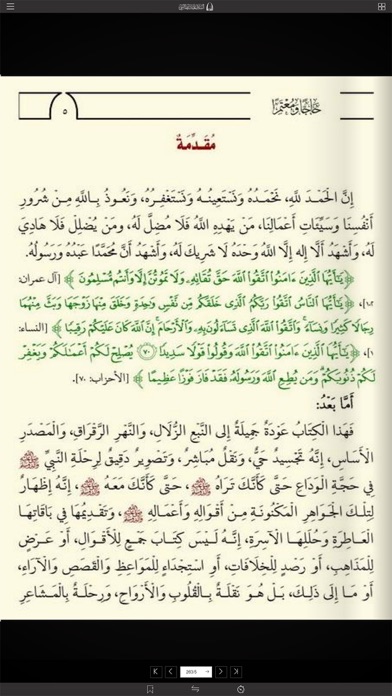 حاجا ومعتمرا
٥
مُقَدِّمَةٌ
إِنَّ الْحَمْدَ لِلَّهِ، نَحْمَدُهُ وَنَسْتَعِينُهُ وَنَسْتَغْفِرُهُ، وَنَعُوذُ بِاللَّهِ مِنْ شُرُورِ
أَنْفُسِنَا وَسَيِّئَاتِ أَعْمَالِنَا، مَنْ يَهْدِهِ اللَّهُ فَلَا مُضِلَّ لَهُ، ومَنْ يُضْلِلْ فَلَا هَادِيَ
لَهُ، وَأَشْهَدُ أَلَّا إِلَهَ إِلَّا اللَّهُ وَحْدَهُ لَا شَرِيكَ لَهُ، وَأَشْهَدُ أَنَّ مُحَمَّدًا عَبْدُهُ وَرَسُولُهُ.
﴿يَٰٓأَيُّهَا ٱلَّذِينَ ءَامَنُوا۟ ٱتَّقُوا۟ ٱللَّهَ حَقَّ تُقَاتِهِۦ وَلَا تَمُوتُنَّ إِلَّا وَأَنتُم مُّسْلِمُونَ﴾ [آل عمران:
١٠٢]، ﴿يَٰٓأَيُّهَا ٱلنَّاسُ ٱتَّقُوا۟ رَبَّكُمُ ٱلَّذِى خَلَقَكُم مِّن نَّفْسٍ وَٰحِدَةٍ وَخَلَقَ مِنْهَا زَوْجَهَا وَبَثَّ مِنْهُمَا
رِجَالًا كَثِيرًا وَنِسَآءً ۚ وَٱتَّقُوا۟ ٱللَّهَ ٱلَّذِى تَسَآءَلُونَ بِهِۦ وَٱلْأَرْحَامَ ۚ إِنَّ ٱللَّهَ كَانَ عَلَيْكُمْ رَقِيبًا﴾ [النساء:
١]، ﴿يَٰٓأَيُّهَا ٱلَّذِينَ ءَامَنُوا۟ ٱتَّقُوا۟ ٱللَّهَ وَقُولُوا۟ قَوْلًا سَدِيدًا ٧٠ يُصْلِحْ لَكُمْ أَعْمَٰلَكُمْ وَيَغْفِرْ
لَكُمْ ذُنُوبَكُمْ ۗ وَمَن يُطِعِ ٱللَّهَ وَرَسُولَهُۥ فَقَدْ فَازَ فَوْزًا عَظِيمًا﴾ [الأحزاب: ٧٠].
أَمَّا بَعْدُ:
فَهَذَا الْكِتَابُ عَوْدَةٌ جَمِيلَةٌ إِلى النَّبْعِ الزُّلَالِ، وَالنَّهْرِ الرَّقْرَاقِ، وَالْمَصْدَرِ
الْأَسَاسِ، إِنَّهُ تَجْسِيدٌ حَيٌّ، وَنَقْلٌ مُبَاشِرٌ، وَتَصْوِيرٌ دَقِيقٌ لِرِحْلَةِ النَّبِيِّ ﷺ
فِي حَجَّةِ الْوَدَاعِ حَتَّى كَأَنَّكَ تَرَاهُ ﷺ، حَتَّى كَأَنَّكَ مَعَهُ ﷺ، إِنَّهُ إِظْهَارٌ
لِتِلْكَ الْجَوَاهِرِ الْمَكْنُونَةِ مِنْ أَقْوَالِهِ وَأَعْمَالِهِ ﷺ، وَتَقْدِيمُهَا فِي بَاقَاتِهَا
الْعَاطِرَةِ وَحُلَلِهَا الْآسِرَةِ، إِنَّهُ لَيْسَ كِتَابَ جَمْعٍ لِلْأَقْوَالِ، أَوْ عَرْضٍ
لِلْمَذَاهِبِ، أَوْ رَصْدٍ لِلْخِلَافَاتِ، أَوِ اسْتِجْدَاءٍ لِلْمَوَاعِظِ وَالْقَصَصِ وَالْآرَاءِ،
أَوْ مَا إِلَى ذَلِكَ، بَلْ هُوَ نَقْلَةٌ بِالْقُلُوبِ وَالْأَرْوَاحِ، وَرِحْلَةٌ بِالْمَشَاعِرِ